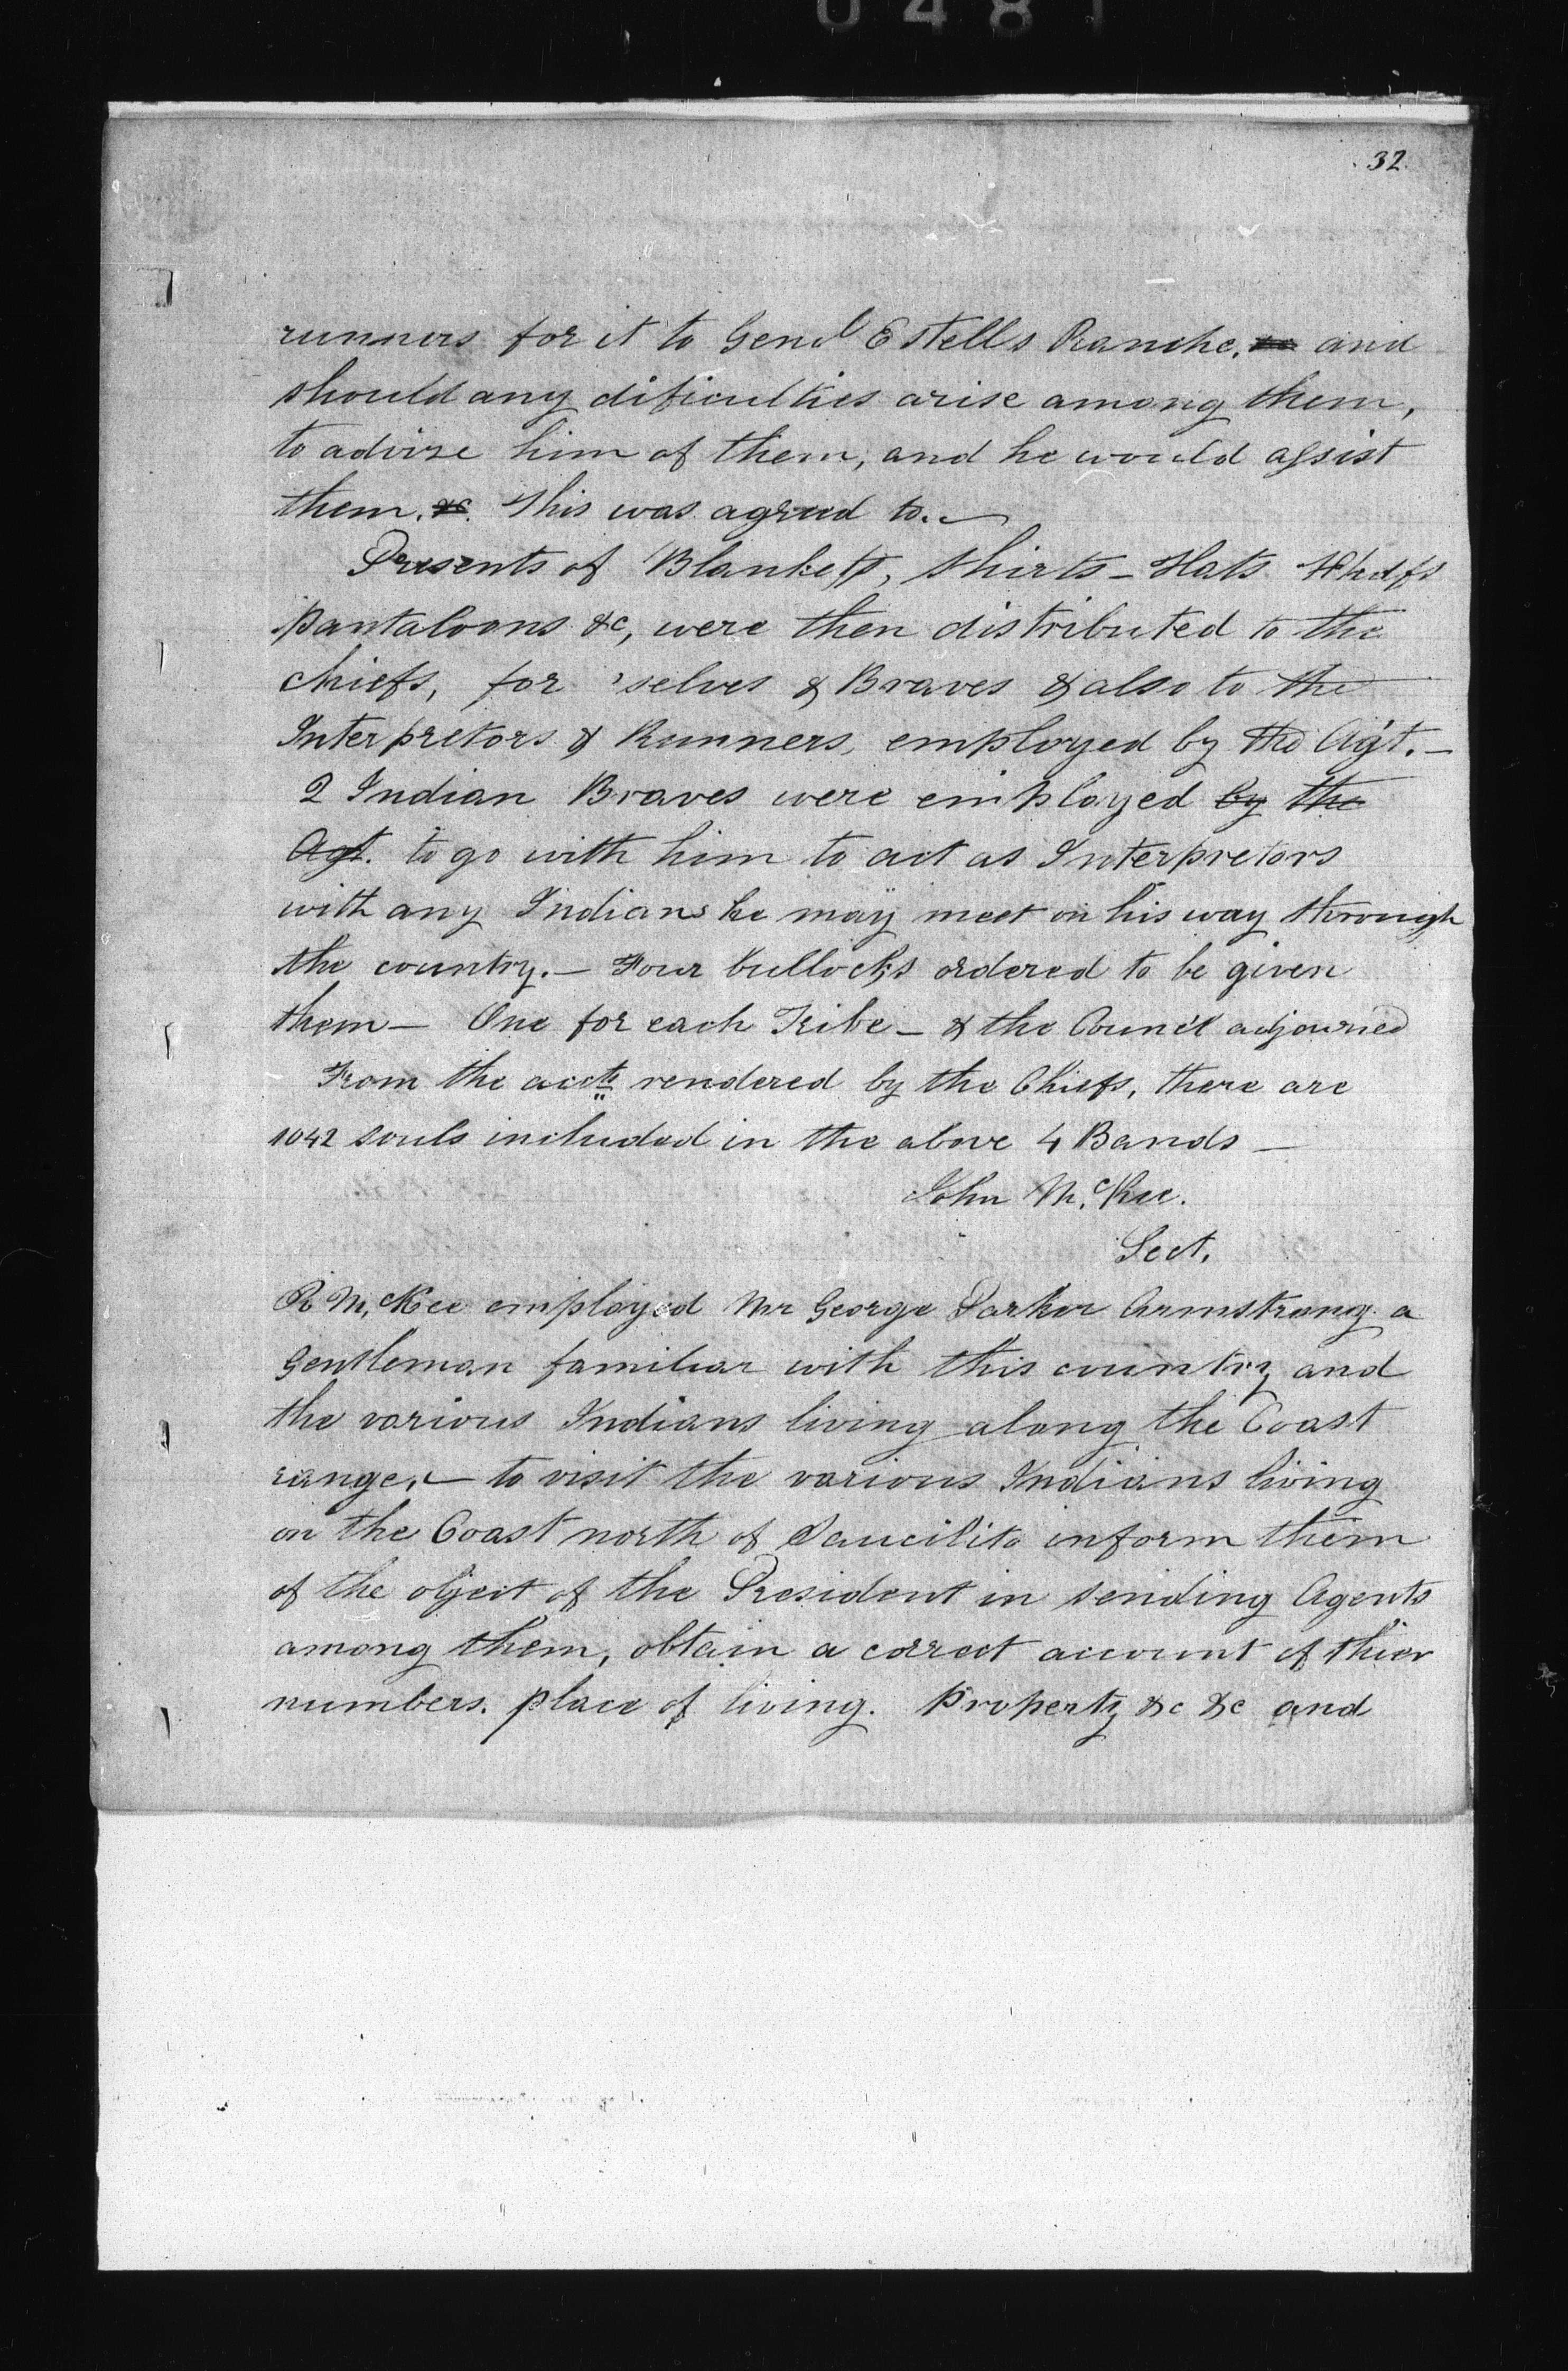 0481
32
runners for it to Genl Estells Ranche. and
should any dificulties arise among them,
to advise him of them, and he would assist
them. &c. This was agreed to. —
Presents of Blankets, Shirts - Hats Hhdfs
pantaloons &c, were then distributed to the
chiefs, for 'selves & Braves & also to the
Interpretors & Runners, employed by the Agt. —
2 Indian Braves were employed by the
Agt. to go with him to act as Interpretors
with any Indians he may meet on his way through
the country. — Four bullocks ordered to be given
them — One for each Tribe — & the Council adjourned
From the accts rendered by the Chiefs, there are
1042 souls included in the above 4 Bands —
John McKee.
Sect.
R McKee employed Mr George Parker Armstrong a
Gentleman familiar with this country and
the various Indians living along the Coast
range, — to visit the various Indians living
on the Coast north of Saucilito inform them
of the object of the President in sending Agents
among them, obtain a correct account of thier
numbers. place of living. Property &c &c and